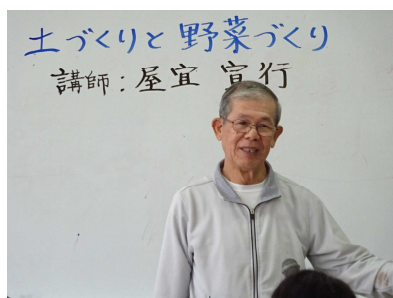 土づくりと 野菜づくり
講師：屋宜 宣行